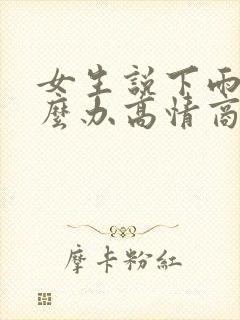 女生說下雨
麼办高情商
摩卡粉紅